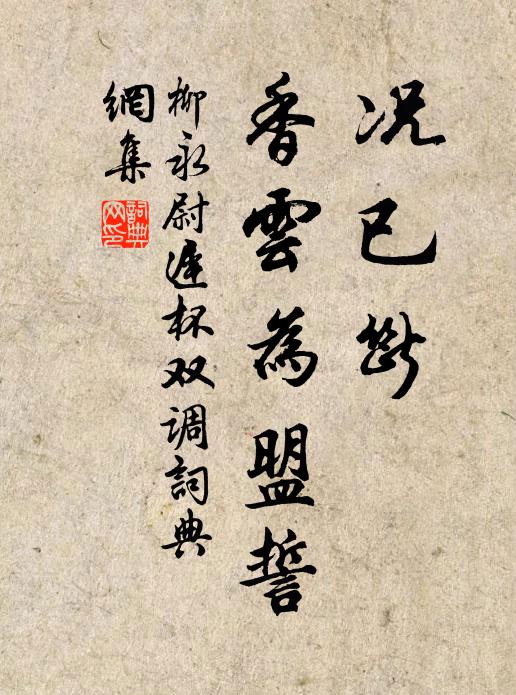 况已断
香雲為盟誓
柳永尉遲杯双调詞典
網集
詞典
网印